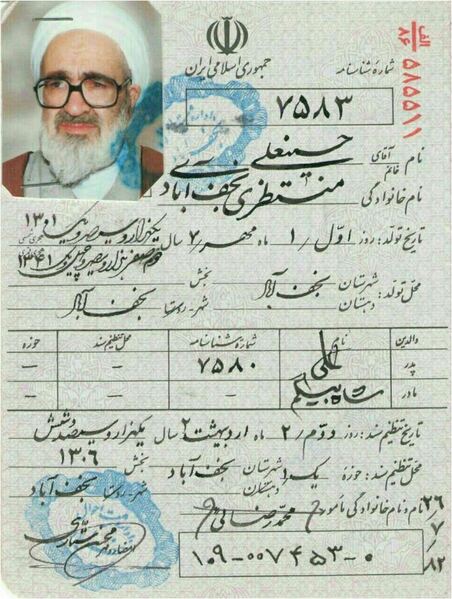 جمهوری اسلامی ایران
شمارهٔ شناسنامه
الف ۸۶ ۵۸۵۵۱۱
۷۵۸۳
نام آقای خانم حسینعلی
نام خانوادگی منتظری نجف آبادی
تاریخ تولد: روز اوّل / ۱ ماه مهر / ۷ سال یکهزار و سیصد و یک ۱۳۰۱
۱۳۴۱
محل تولد: شهرستان نجف آباد بخش
دهستان شهر-روستا نجف آباد
والدین نام شمارهٔ شناسنامه محل تنظیم سند حوزه
پدر علی ۷۵۸۰ – –
مادر شاه بیگم – – –
تاریخ تنظیم سند: روز دوم / ۲ ماه اردیبهشت ۲ سال یکهزار و سیصد و شش
۱۳۰۶
محل تنظیم سند: حوزه یک شهرستان نجف آباد بخش
دهستان شهر-روستا نجف آباد
نام و نام خانوادگی مأمور
۲۶
۷
۸۲
۱۰۹-۰۰۷۴۵۳-۰